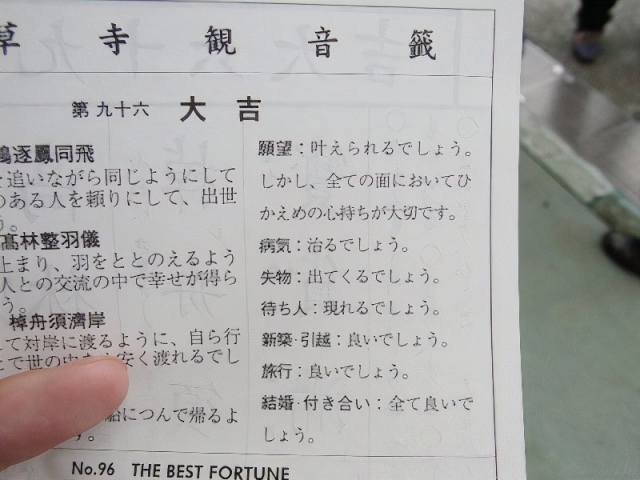 草寺観音籤
第九十六 大吉
願望：叶えられるでしょう。
しかし、全ての面においてひ
かえめの心持ちが大切です。
病気：治るでしょう。
失物：出てくるでしょう。
待ち人：現れるでしょう。
新築・引越：良いでしょう。
旅行：良いでしょう。
結婚・付き合い：全て良いで
しょう。
逐鳳同飛
を追いながら同じようにして
のある人を頼りにして、出世
う。
高林整羽儀
止まり、羽をととのえるよう
人との交流の中で幸せが得ら
う。
棹舟須濟岸
て対岸に渡るように、自ら行
とで世の中を 安く渡れるでし
船につんで帰るよ
す。
No.96 THE BEST FORTUNE